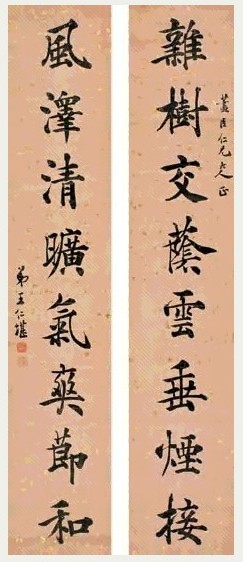 藎臣仁兄大人正
雜樹交蔭雲垂煙接
風澤清曠氣爽節和
弟王仁堪